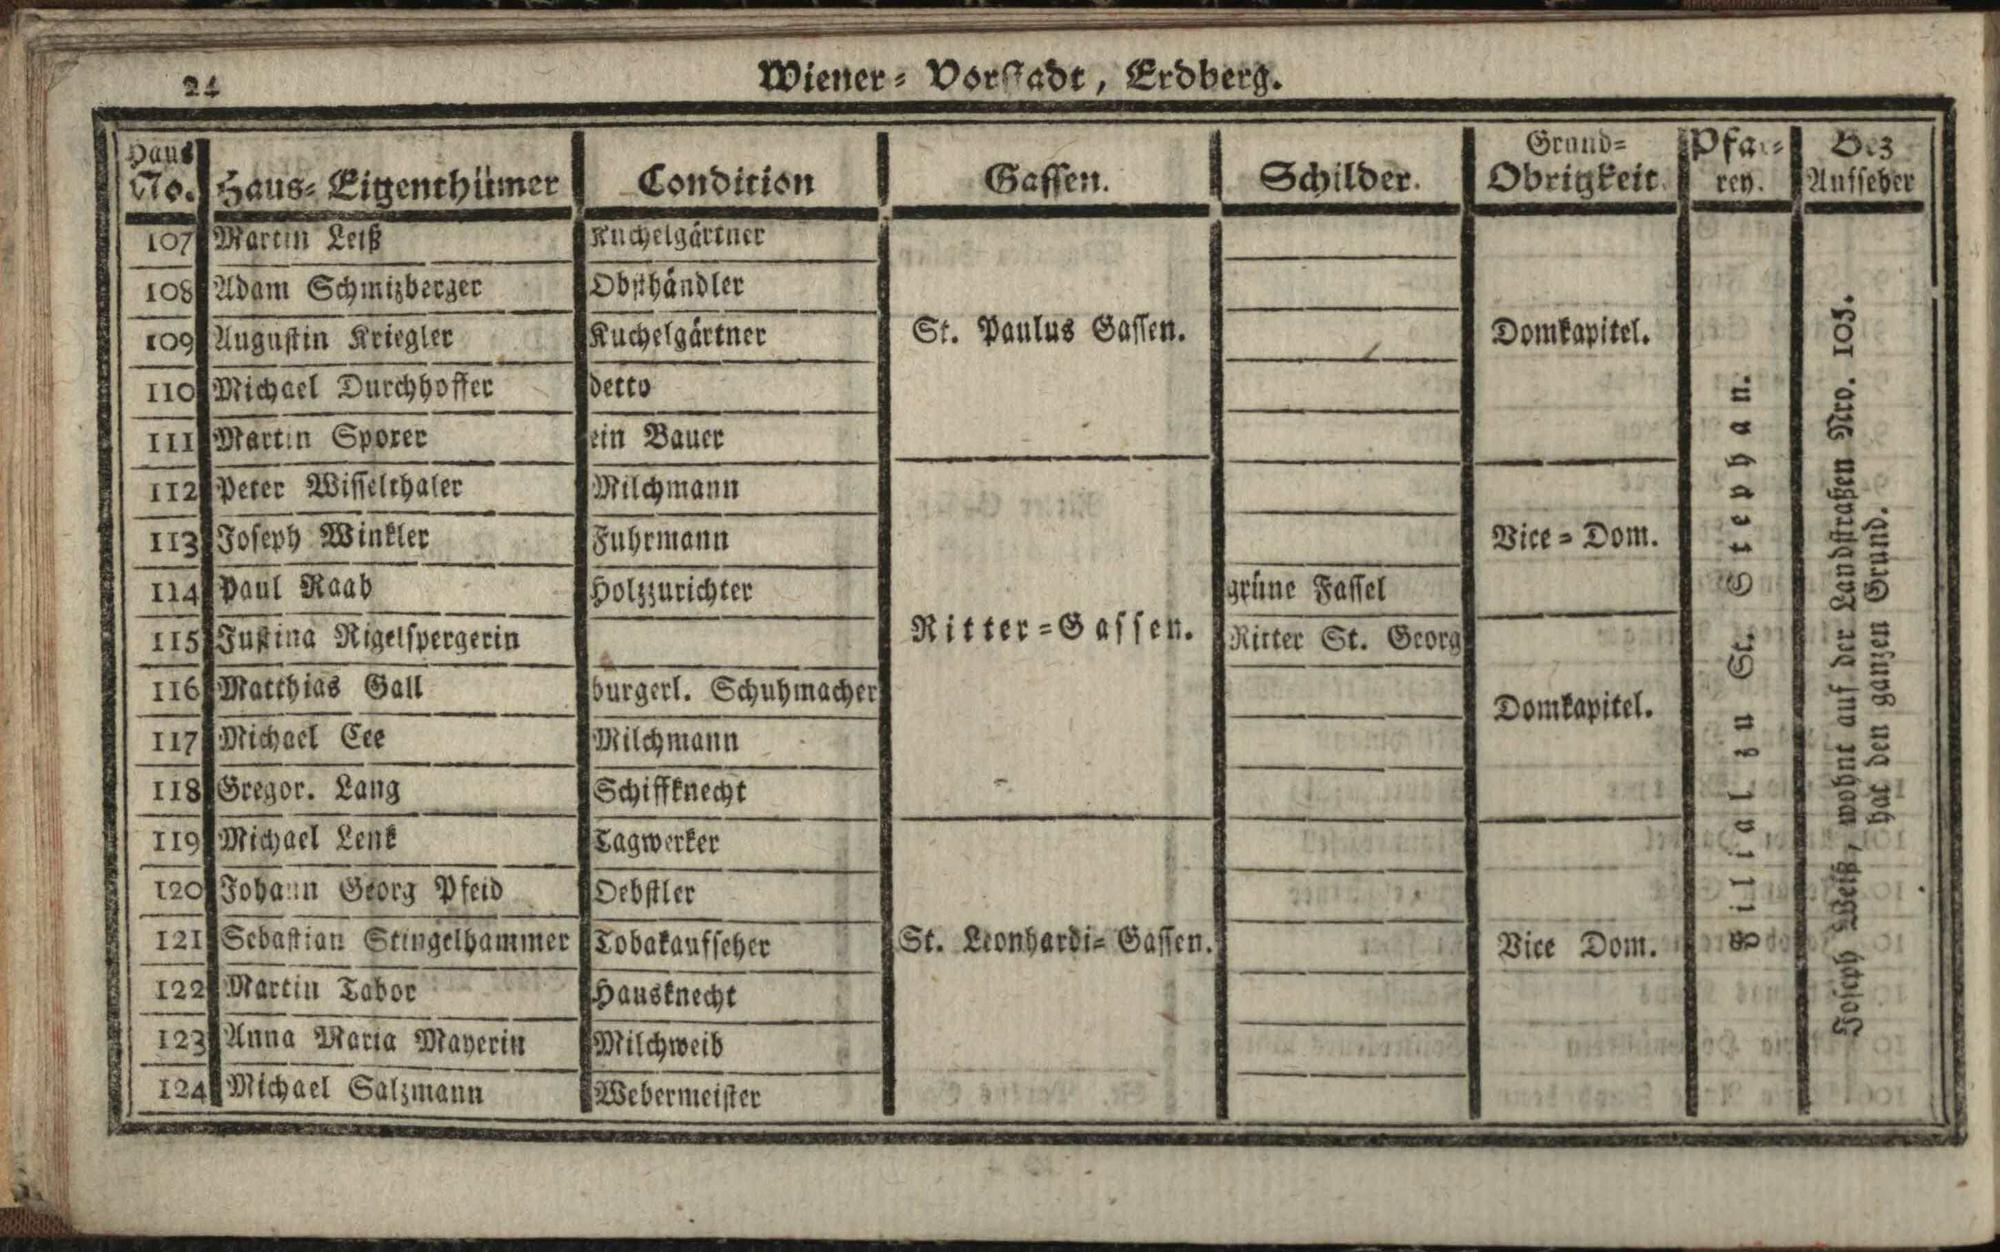 24
Wiener- Vorstadt, Erdberg.
Haus No. Haus- Eigenthümer Condition Gassen. Schilder. Grund- Obrigkeit. Pfar- rey. Bez Aufseher
107 Martin Leiß Kuchelgärtner
108 Adam Schmizberger Obsthändler
109 Augustin Kriegler Kuchelgärtner St. Paulus Gassen. Domkapitel.
110 Michael Durchhoffer detto
111 Martin Sporer ein Bauer
112 Peter Wisselthaler Milchmann
113 Joseph Winkler Fuhrmann Vice-Dom.
114 Paul Raab Holzzurichter grüne Fassel
115 Justina Rigelspergerin Ritter-Gassen. Ritter St. Georg
116 Matthias Gall burgerl. Schuhmacher Domkapitel.
117 Michael Cee Milchmann
118 Gregor. Lang Schiffknecht
119 Michael Lenk Tagwerker
120 Johann Georg Pfeid Oebstler
121 Sebastian Stingelhammer Tobakaufseher St. Leonhardi- Gassen. Vice Dom.
122 Martin Tabor Hausknecht
123 Anna Maria Mayerin Milchweib
124 Michael Salzmann Webermeister
Filial zu St. Stephan.
Joseph Weiß, wohnt auf der Landstraßen Nro. 103.
hat den ganzen Grund.